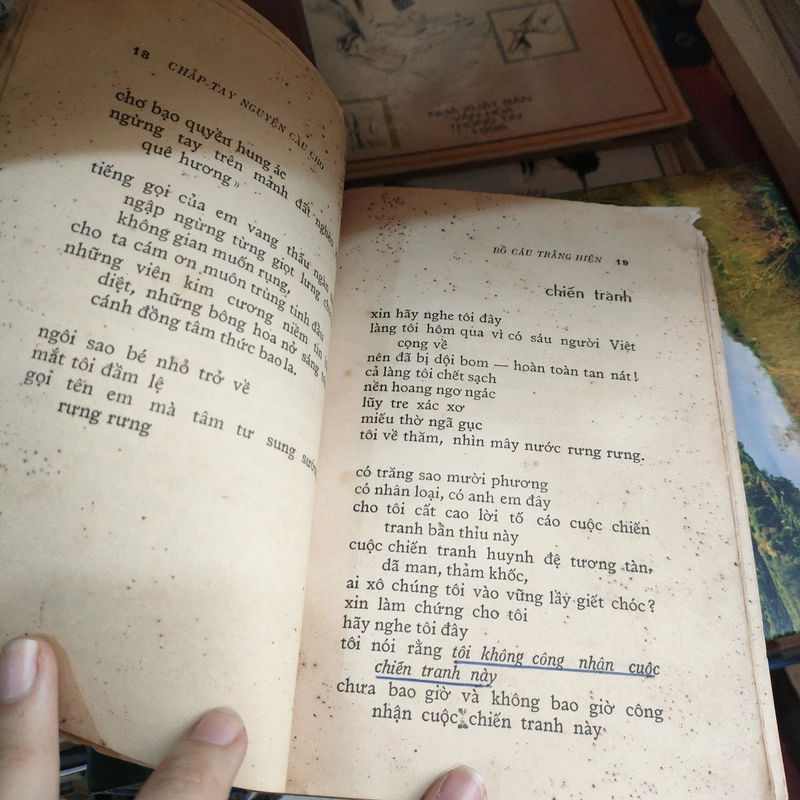 18 CHẮP-TAY NGUYỆN CẦU CHO
chơ bạo quyền hung ác
ngừng tay trên mảnh đất nghèo
quê hương»
tiếng gọi của em vang thấu ngàn
ngập ngừng từng giọt lưng
không gian muốn rụng,
cho ta cám ơn muôn trùng tinh đẩu
những viên kim cương niềm tin
diệt, những bông hoa nở sáng
cánh đồng tâm thức bao la.
ngôi sao bé nhỏ trở về
mắt tôi đầm lệ
gọi tên em mà tâm tư sung sướng
rưng rưng
NHÀ XUẤT BẢN
VĂN HÓA
THÔNG TIN
BỒ CÂU TRẮNG HIỆN 19
chiến tranh
xin hãy nghe tôi đây
làng tôi hôm qua vì có sáu người Việt
cọng về
nên đã bị dội bom — hoàn toàn tan nát!
cả làng tôi chết sạch
nền hoang ngơ ngác
lũy tre xác xơ
miếu thờ ngã gục
tôi về thăm, nhìn mây nước rưng rưng.
có trăng sao mười phương
có nhân loại, có anh em đây
cho tôi cất cao lời tố cáo cuộc chiến
tranh bẩn thỉu này
cuộc chiến tranh huynh đệ tương tàn,
dã man, thảm khốc,
ai xô chúng tôi vào vững lầy giết chóc?
xin làm chứng cho tôi
hãy nghe tôi đây
tôi nói rằng tôi không công nhận cuộc
chiến tranh này
chưa bao giờ và không bao giờ công
nhận cuộc chiến tranh này